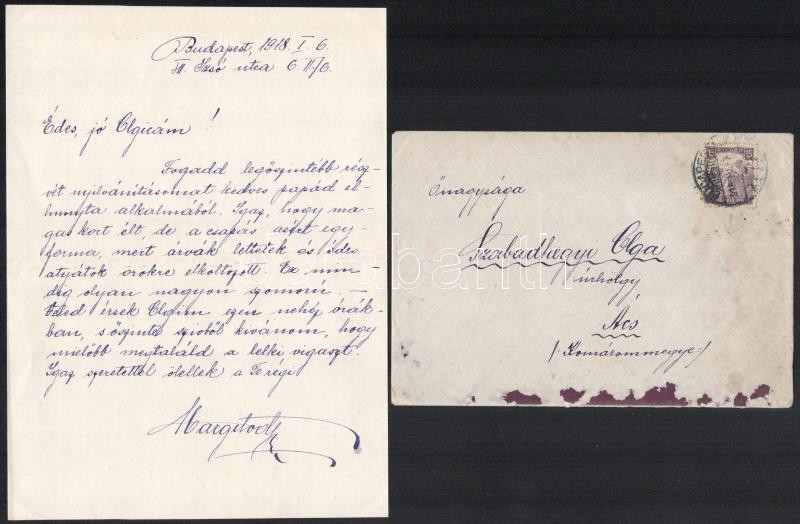 Budapest, 1918. I. 6.
VII. Izsó utca 6. II./6.
Édes, jó Olgicám!
Fogadd legőszintébb rész-
vét nyilvánításomat kedves papád el-
hunyta alkalmából. Igaz, hogy ma-
gas kort élt, de a csapás azért egy-
forma, mert árvák lettetek és édes
atyátok örökre elköltözött. Ez min-
dig olyan nagyon szomorú. —
Veled érzek Olgim ezen nehéz órák-
ban, s őszinte szívből kivánom, hogy
mielőbb megtaláld a lelki vigaszt.
Igaz szeretettel ölellek a Te régi
Margitod
Őnagysága
Szabadhegyi Olga
úrhölgy
Ács
/: Komárommegye :/
15 15